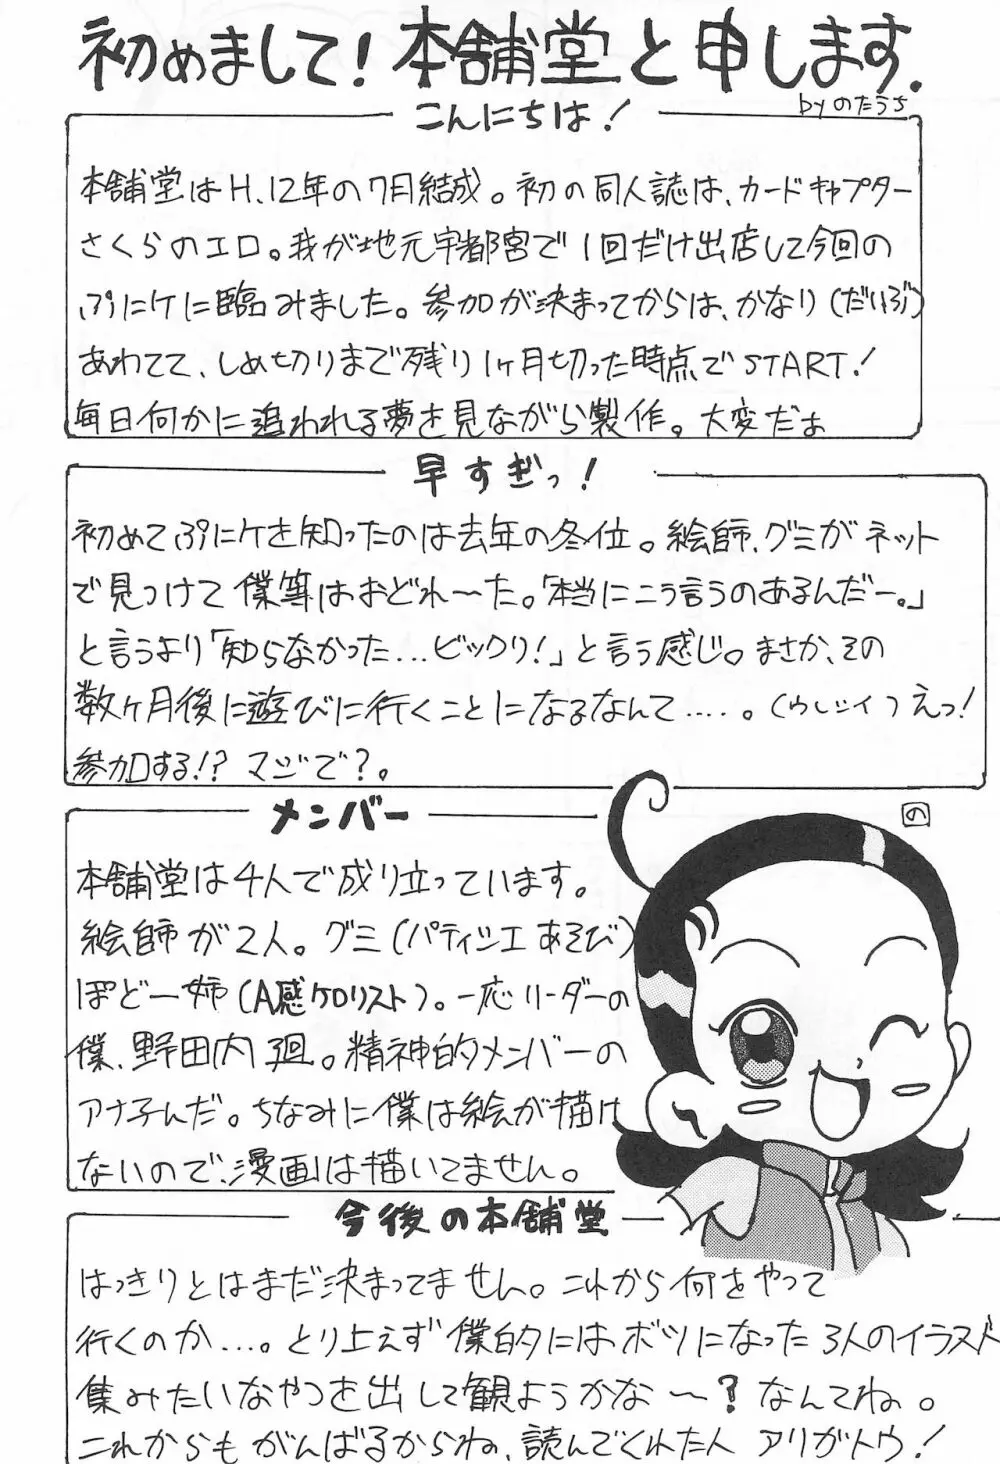 初めまして!本舗堂と申します.
byのたうち
こんにちは!
本舗堂はH.12年の7月結成。初の同人誌は、カードキャプター
さくらのエロ。我が地元宇都宮で1回だけ出店して今回の
ぷにケに臨みました。参加が決まってからは、かなり(だいぶ)
あわてて、しめ切りまで残り1ヶ月切った時点でSTART!
毎日何かに追われる夢を見ながら製作。大変だぁ
早すぎっ!
初めてぷにケを知ったのは去年の冬位。絵師、グミがネット
で見つけて僕等はおどれ〜た。「本当にこう言うのあるんだー。」
と言うより「知らなかった…ビックリ!」と言う感じ。まさか、その
数ヶ月後に遊びに行くことになるなんて……。(ウレシイ)えっ!
参加する!?マジで?。
メンバー
の
本舗堂は4人で成り立っています。
絵師が2人。グミ(パティシエあそび)
ぽどー姉(A感ケロリスト)。一応リーダーの
僕、野田内廻。精神的メンバーの
アナ子んだ。ちなみに僕は絵が描け
ないので、漫画は描いてません。
今後の本舗堂
はっきりとはまだ決まってません。これから何をやって
行くのか…。とり上えず僕的にはボツになった3人のイラスト
集みたいなやつを出して観ようかな〜?なんてね。
これからもがんばるからね、読んでくれた人アリガトウ!